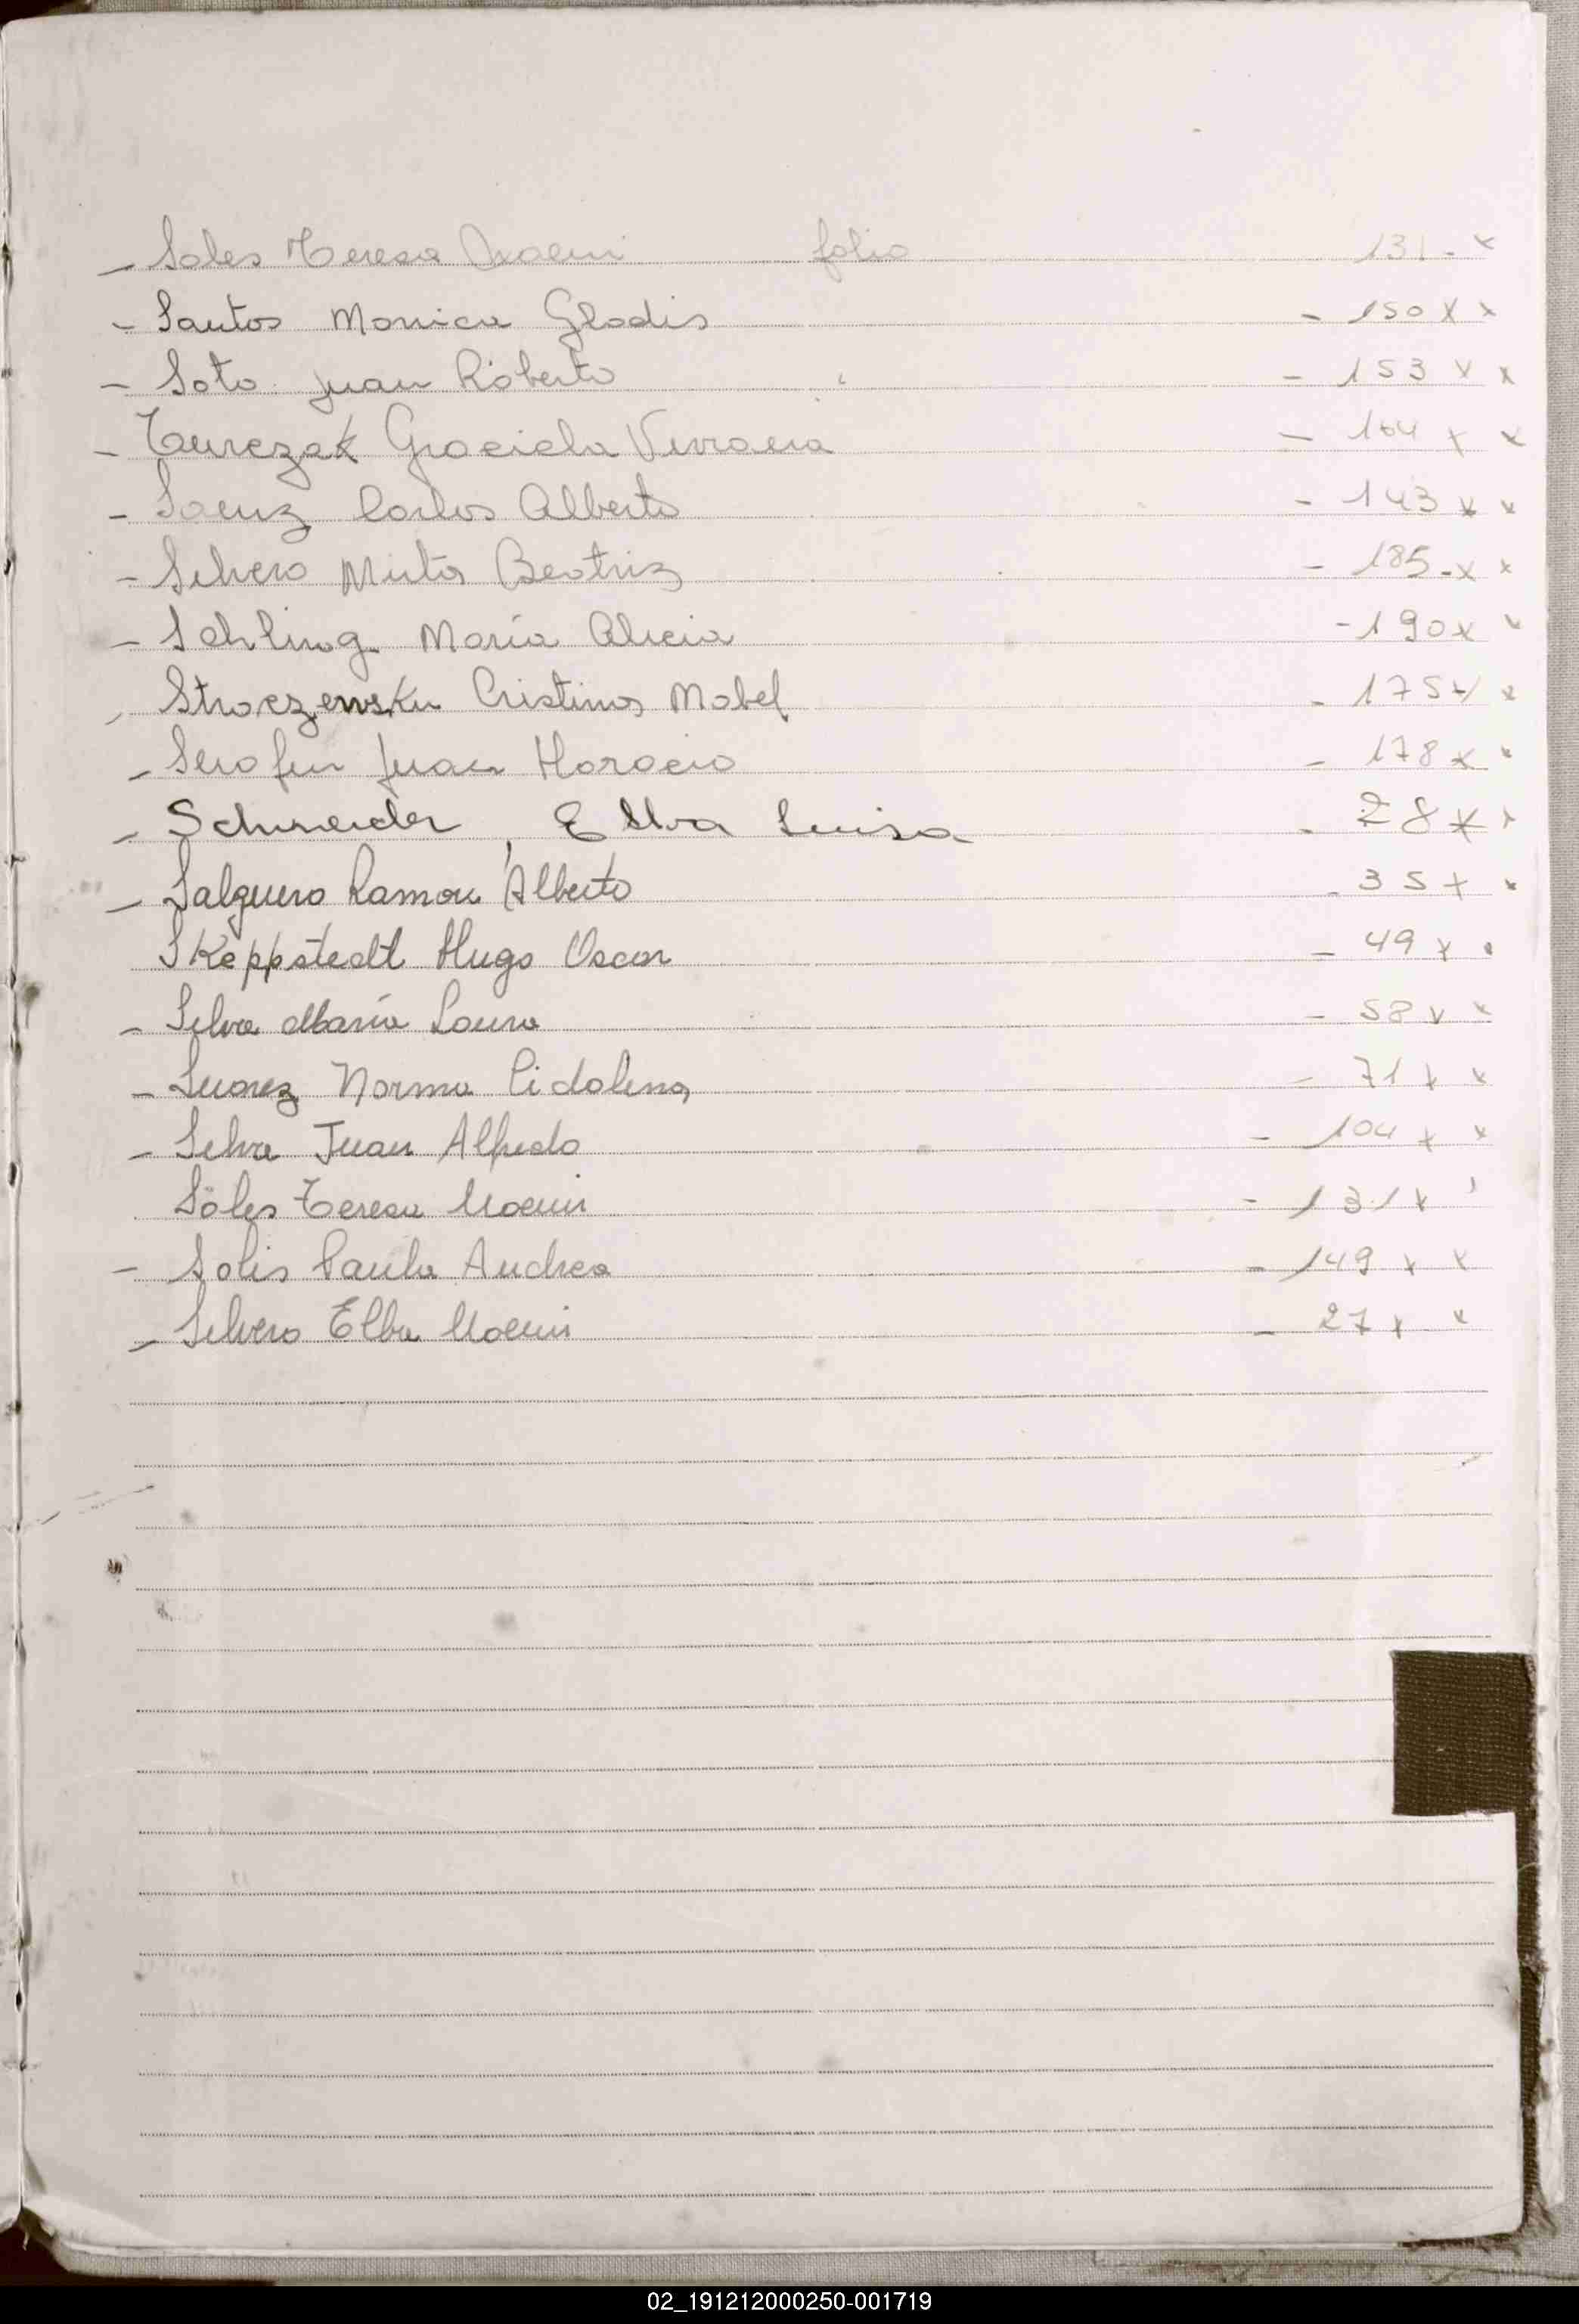 - Soles Teresa Noemi folio 131 - x
- Santos Monica Gladis - 150 x x
- Soto Juan Roberto - 153 x x
- Graciela - 164 x x
- Saenz Carlos Alberto - 143 x x
- Silvero Mirta Beatriz - 185 - x x
- Schling María Alicia - 190 x x
- Cristina Mabel - 175 x x
- Serafin Juan Horacio - 178 x x
- Schneider, Elba Luisa - 28 x x
- Salguero Ramon Alberto - 35 x x
Skeppstedt Hugo Oscar - 49 x x
- Silva María Laura - 58 x x
- Suarez Norma - 71 x x
- Silva Juan Alfredo - 104 x x
Soles Teresa Noemi - 131 x
- Solis Paula Andrea - 149 x x
- Silvero Elba Noemi - 27 x x
02_191212000250-001719